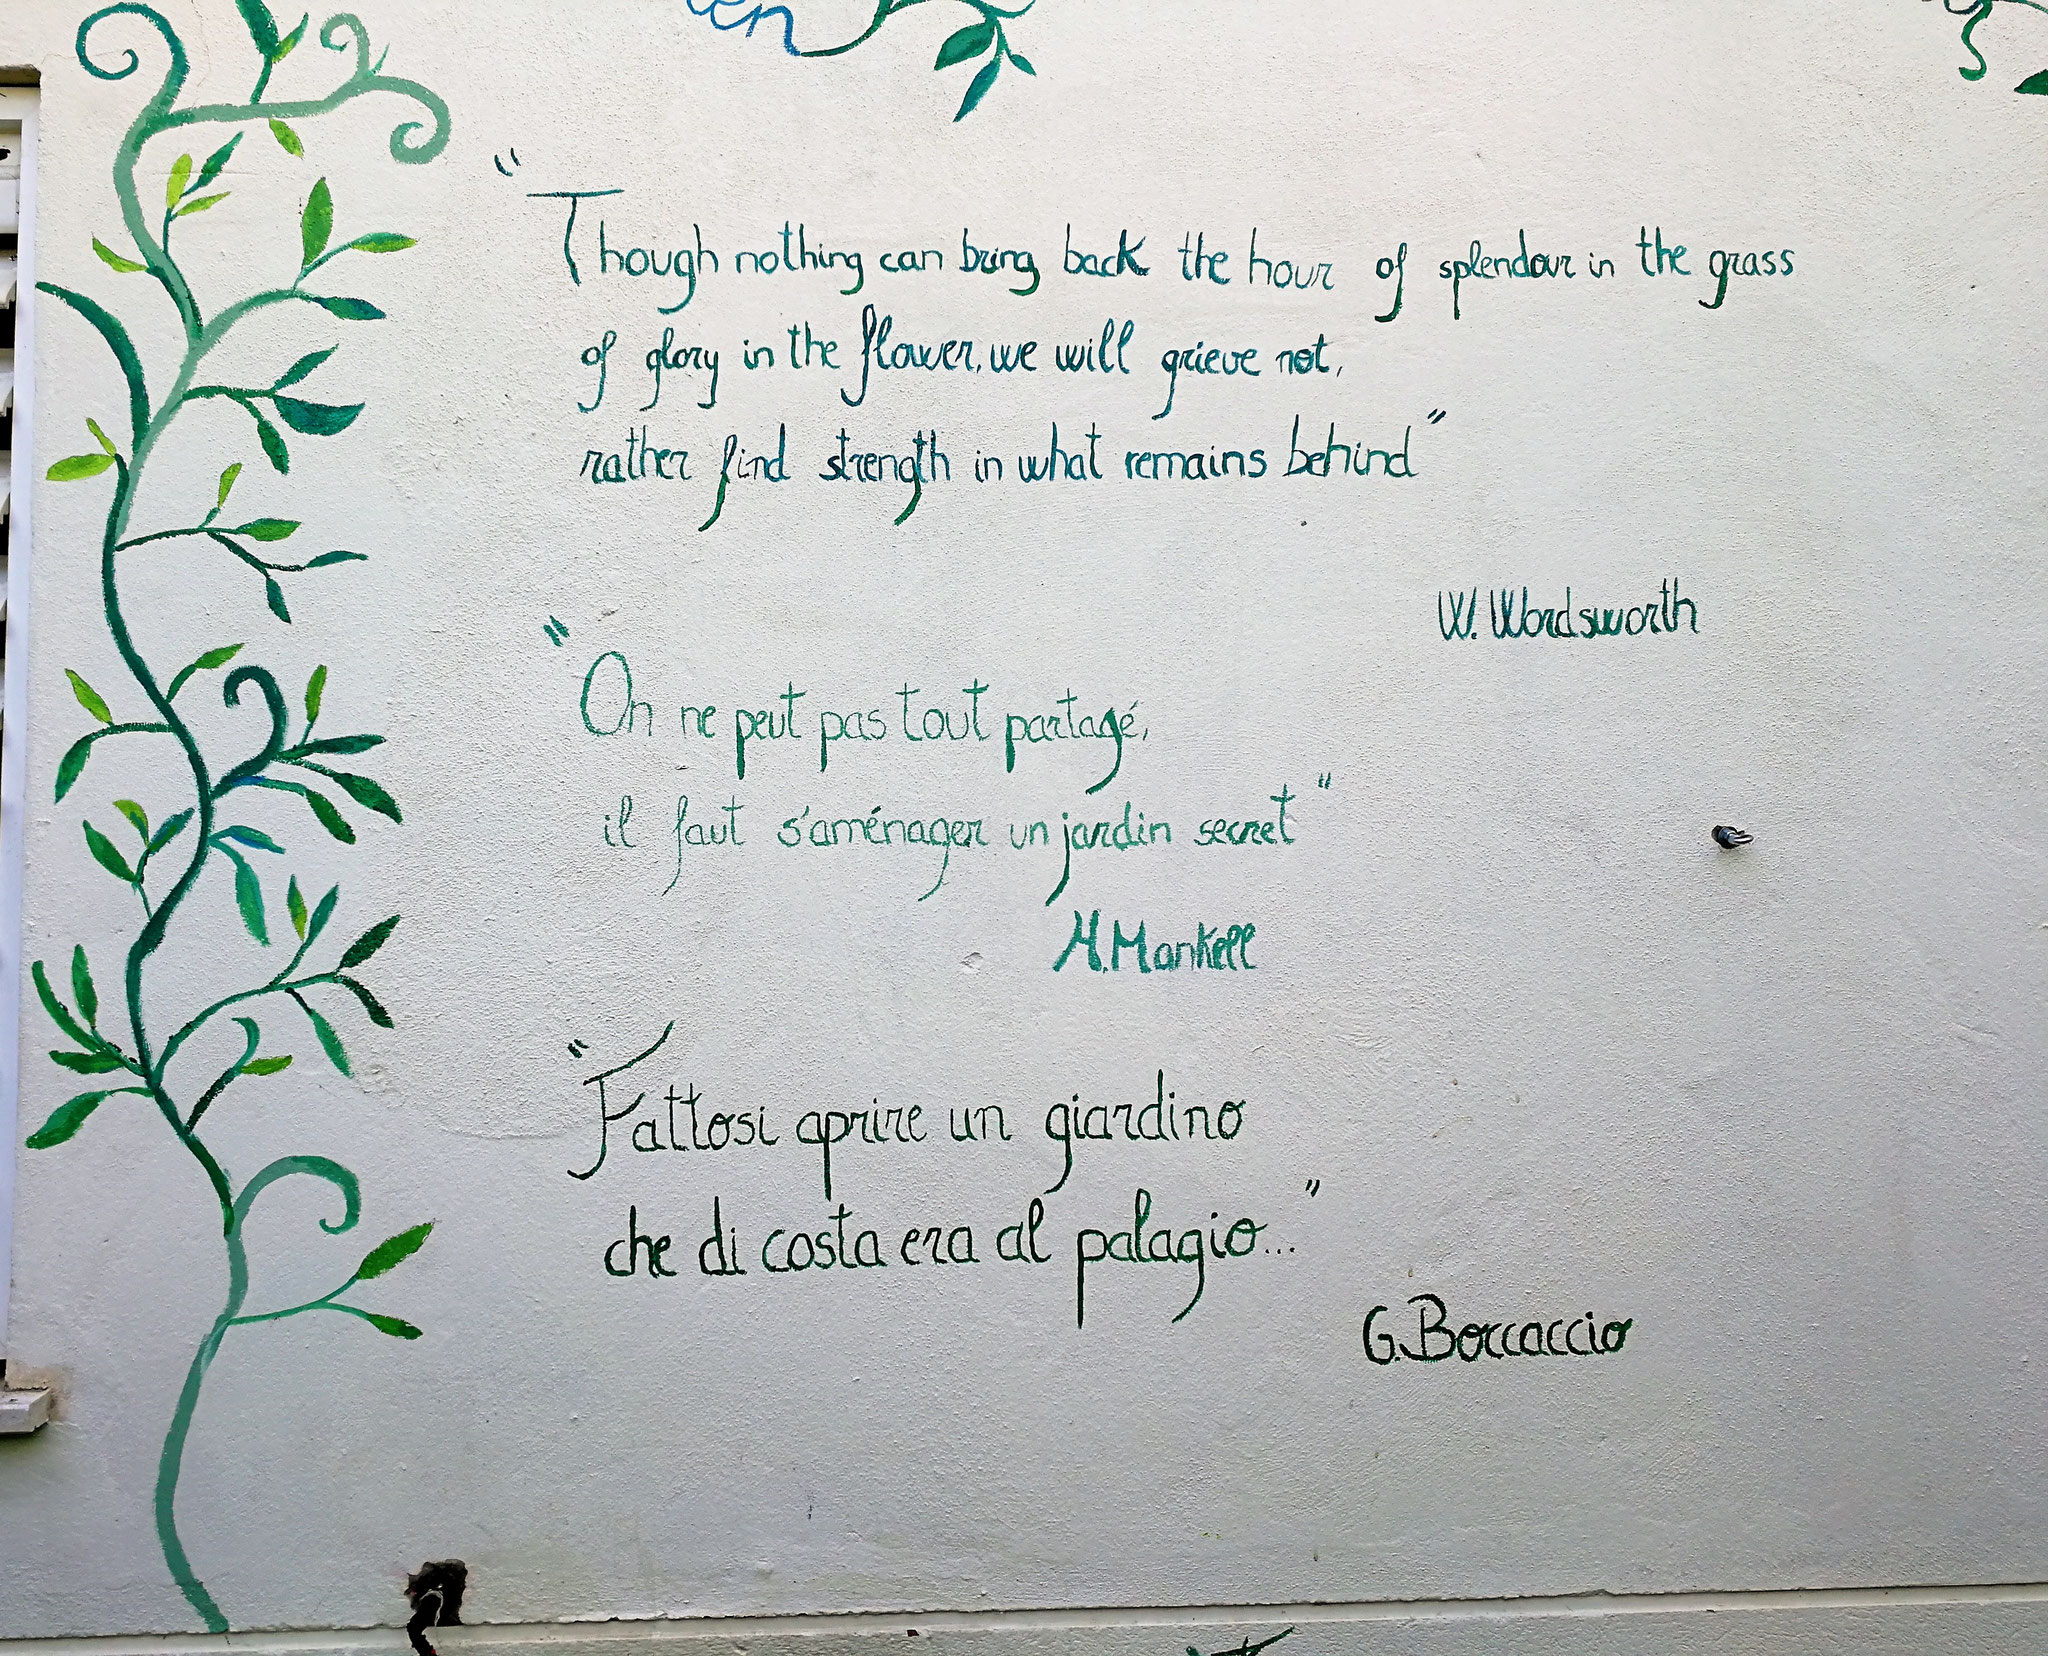 en
"Though nothing can bring back the hour of splendour in the grass
of glory in the flower, we will grieve not,
rather find strength in what remains behind"
W. Wordsworth
"On ne peut pas tout partagé,
il faut s'aménager un jardin secret"
H. Mankell
"Fattosi aprire un giardino
che di costa era al palagio..."
G. Boccaccio